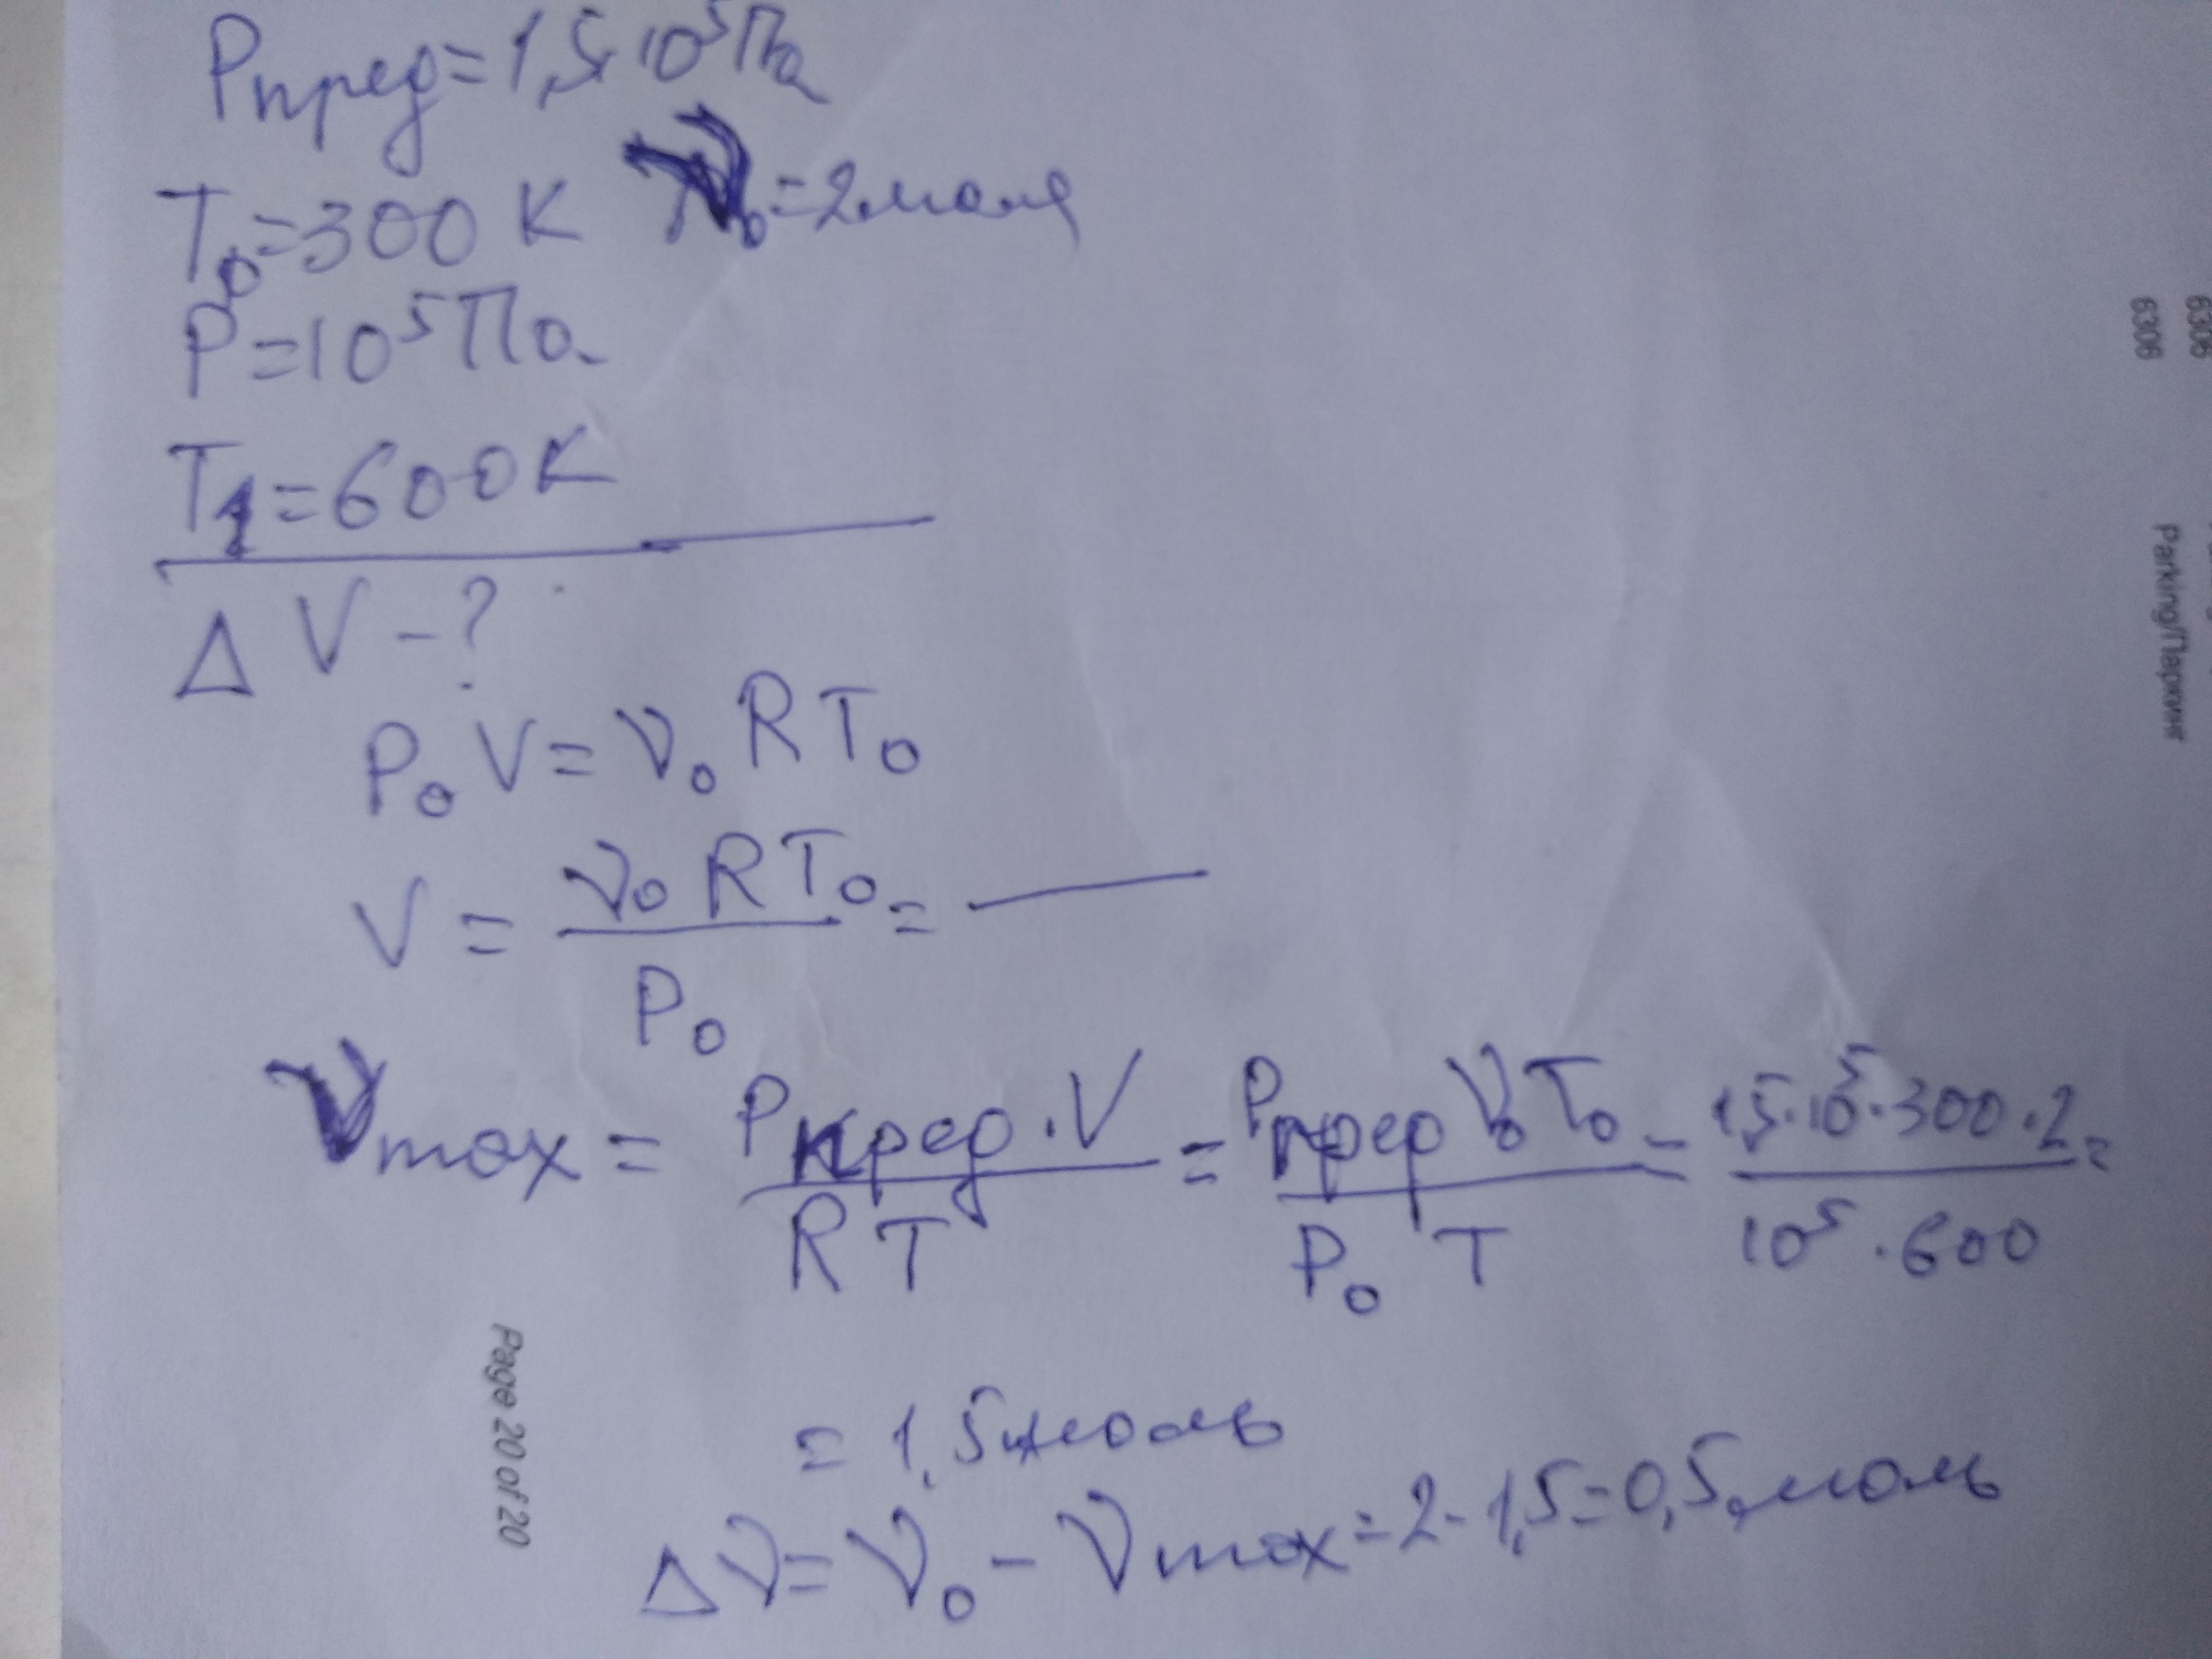 Pпред=1,5·10⁵Па
T₀=300 K ν₀=2моля
P=10⁵Па
T₁=600K
ΔV-?
P₀V=ν₀RT₀
V=ν₀RT₀/P₀=
νmax=Pпред·V/RT=Pпредν₀T₀/P₀T=1,5·10⁵·300·2/10⁵·600=
=1,5моль
Δν=ν₀-νmax=2-1,5=0,5моль
Page 20 of 20
6306
6306
Parking/Паркинг